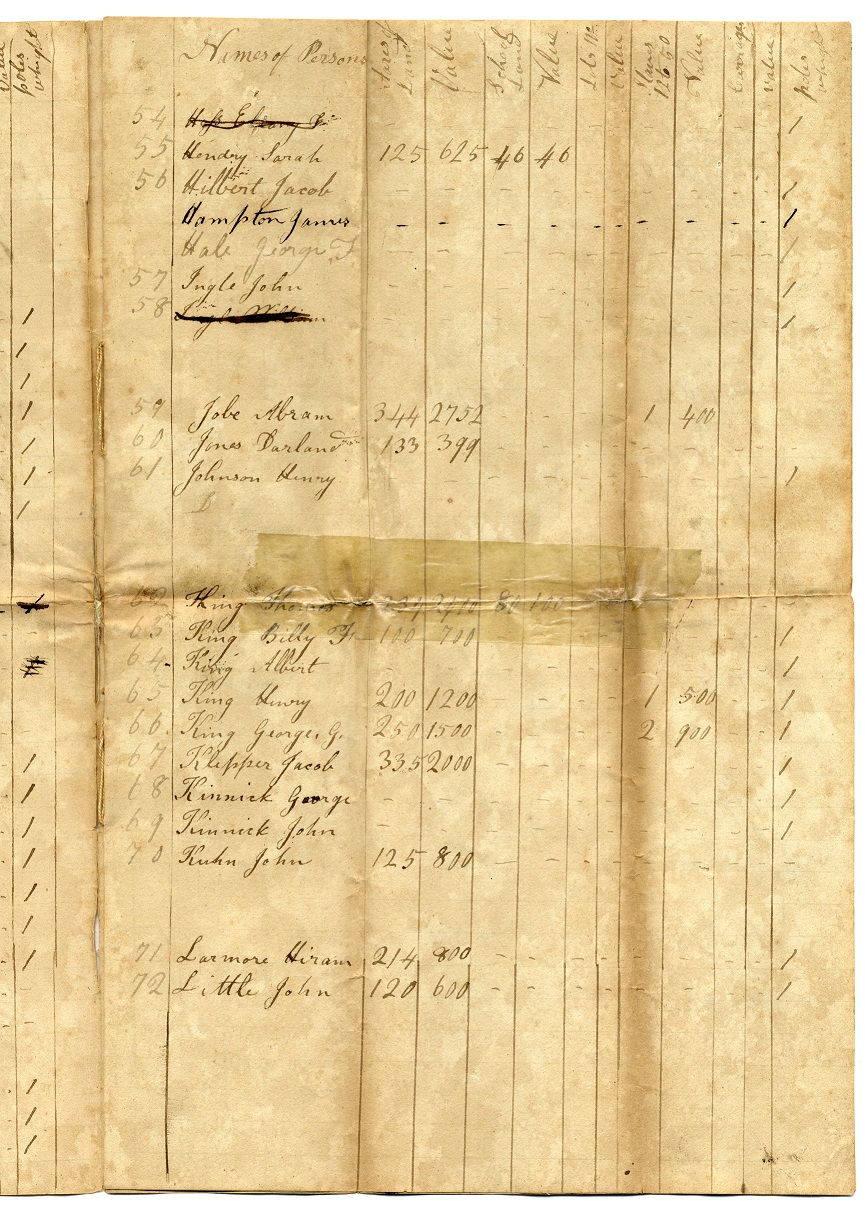 Value
poles
whight
Names of Persons Acres of Land Value School Land Value Lots No Value Slaves 12 to 50 Value Carriages value poles whight
54 - - 1
55 Hendry Sarah 125 625 46 46
56 Hilbert Jacob - - - - - - - - - - 1
Hampton James - - - - - - - - - - 1
Hale George F - - - - - - - - - - 1
57 Ingle John - - - - - - - - - - 1
58 - - - - - - - - - - 1
59 Jobe Abram 344 2752 - - - - 1 400
60 Jones Darland 133 399 - - - -
61 Johnson Henry - - - - - - - - - - 1
D
62 King Thomas 234 2400 80 100 - -
63 King Billy F 100 700 - - - - - - - - 1
64 King Albert - - - - - - - - - - 1
65 King Henry 200 1200 - - - - 1 500 - - 1
66 King George, G. 250 1500 - - - - 2 900 - - 1
67 Klepper Jacob 335 2000 - - - - - - - - 1
68 Kinnick George - - - - - - - - - - 1
69 Kinnick John - - - - - - - - - - 1
70 Kuhn John 125 800 - - - - - - - -
71 Larmore Hiram 214 800 - - - - - - - - 1
72 Little John 120 600 - - - - - - - - 1